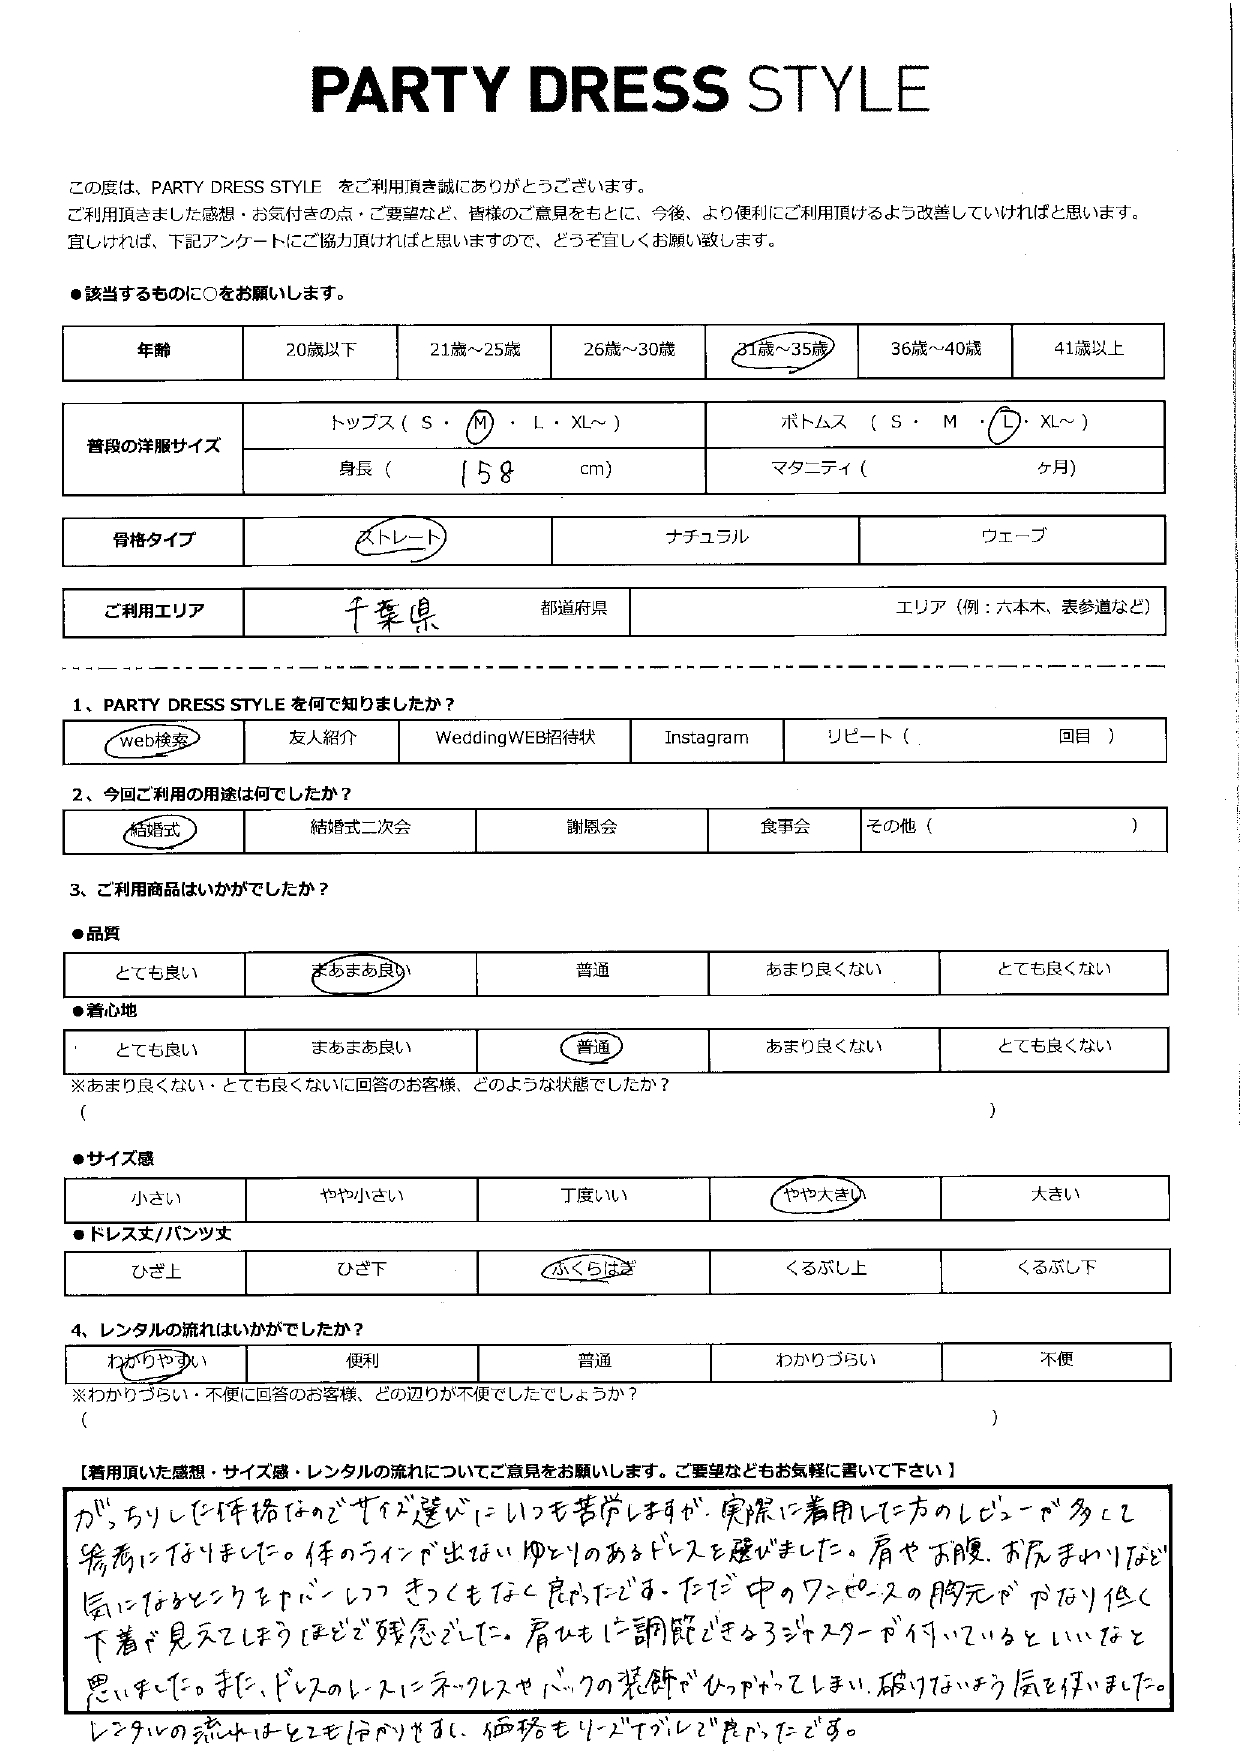 PARTY DRESS STYLE
この度は、PARTY DRESS STYLE をご利用頂き誠にありがとうございます。
ご利用頂きました感想・お気付きの点・ご要望など、皆様のご意見をもとに、今後、より便利にご利用頂けるよう改善していければと思います。
宜しければ、下記アンケートにご協力頂ければと思いますので、どうぞ宜しくお願い致します。
●該当するものに○をお願いします。
年齢 20歳以下 21歳～25歳 26歳～30歳 31歳～35歳 36歳～40歳 41歳以上
普段の洋服サイズ
トップス ( S ・ M ・ L ・ XL～ ) ボトムス ( S ・ M ・ L ・ XL～ )
身長 ( 158 cm) マタニティ ( ケ月)
骨格タイプ ストレート ナチュラル ウェーブ
ご利用エリア 千葉県 都道府県 エリア (例：六本木、表参道など)
1、PARTY DRESS STYLE を何で知りましたか？
web検索 友人紹介 WeddingWEB招待状 Instagram リピート ( 回目 )
2、今回ご利用の用途は何でしたか？
結婚式 結婚式二次会 謝恩会 食事会 その他 ( )
3、ご利用商品はいかがでしたか？
●品質
とても良い まあまあ良い 普通 あまり良くない とても良くない
●着心地
とても良い まあまあ良い 普通 あまり良くない とても良くない
※あまり良くない・とても良くないに回答のお客様、どのような状態でしたか？
( )
●サイズ感
小さい やや小さい 丁度いい やや大きい 大きい
●ドレス丈/パンツ丈
ひざ上 ひざ下 ふくらはぎ くるぶし上 くるぶし下
4、レンタルの流れはいかがでしたか？
わかりやすい 便利 普通 わかりづらい 不便
※わかりづらい・不便に回答のお客様、どの辺りが不便でしたでしょうか？
( )
【着用頂いた感想・サイズ感・レンタルの流れについてご意見をお願いします。ご要望などもお気軽に書いて下さい 】
がっちりした体格なのでサイズ選びにいつも苦労しますが、実際に着用した方のレビューが多くて
参考になりました。体のラインが出ないゆとりのあるドレスを選びました。肩やお腹、お尻まわりなど
気になるところをカバーしつつきつくもなく良かったです。ただ中のワンピースの胸元がかなり低く
下着が見えてしまうほどで残念でした。肩ひもに調節できるアジャスターが付いているといいなと
思いました。また、ドレスのレースにネックレスやバックの装飾がひっかかってしまい、破けないよう気を使いました。
レンタルの流れはとても分かりやすし、価格もリーズナブルで良かったです。